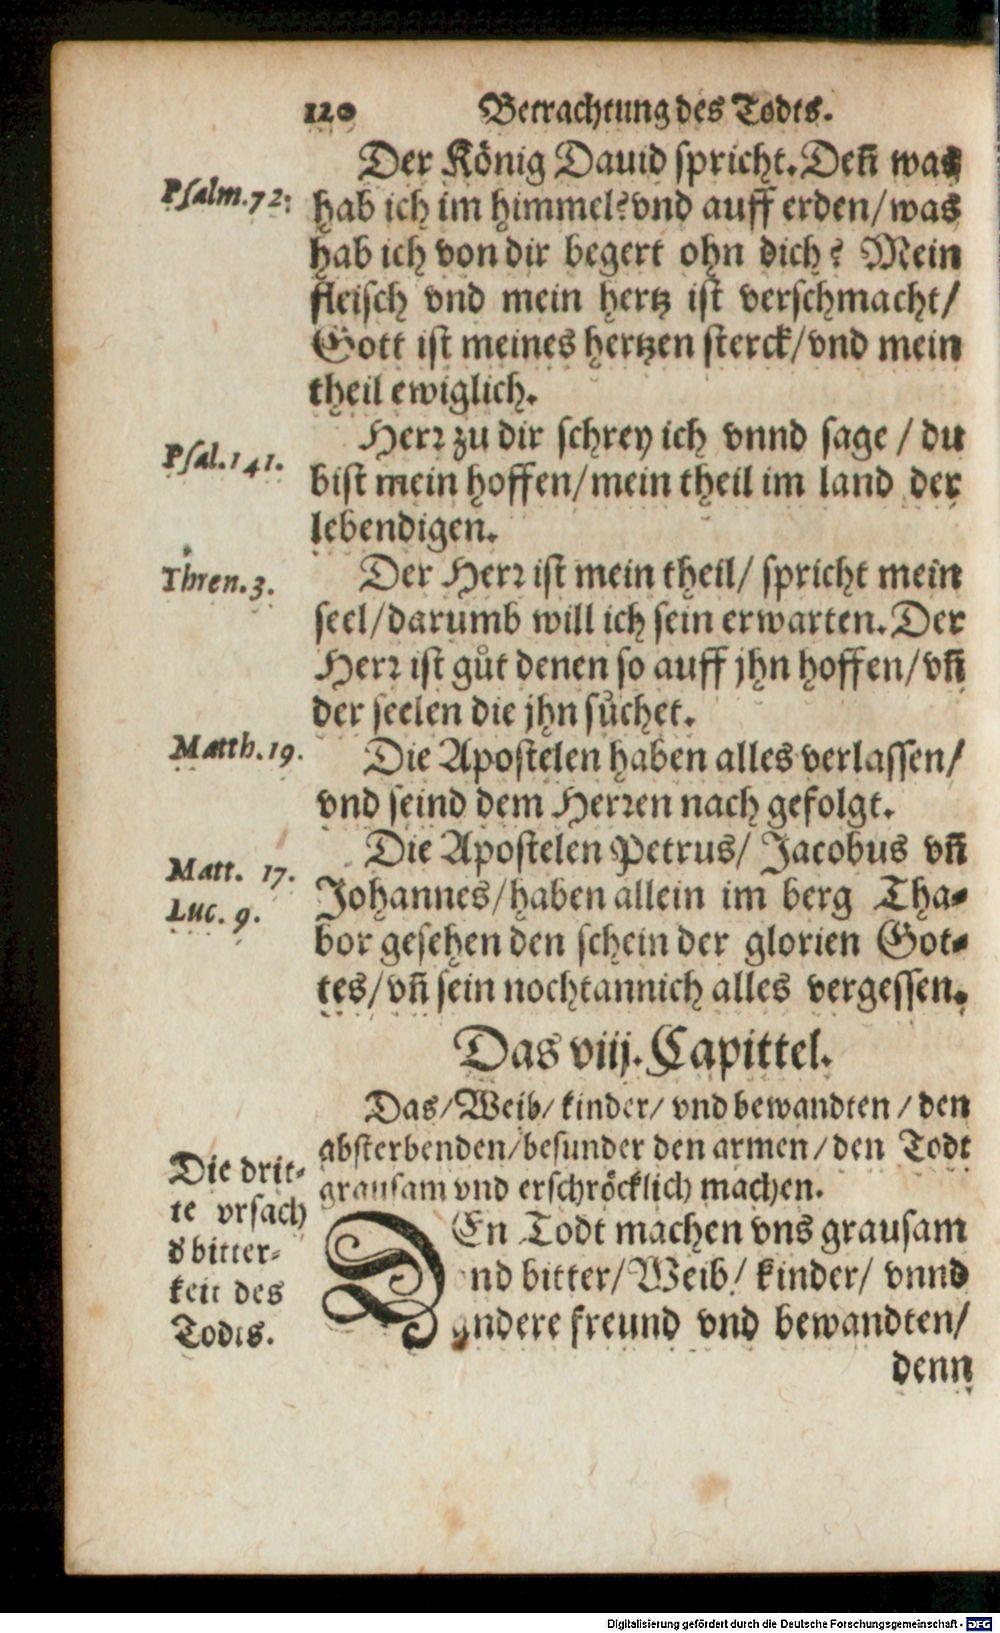 120 Betrachtung des Todts.
Der König Dauid spricht. Deñ was
Psalm. 72:
hab ich im himmel? vnd auff erden/ was
hab ich von dir begert ohn dich? Mein
fleisch vnd mein hertz ist verschmacht/
Gott ist meines hertzen sterck/ vnd mein
theil ewiglich.
Herr zu dir schrey ich vnnd sage / du
Psal. 141.
bist mein hoffen/ mein theil im land der
lebendigen.
Der Herr ist mein theil/ spricht mein
Thren. 3.
seel/ darumb will ich sein erwarten. Der
Herr ist gůt denen so auff jhn hoffen/ vñ
der seelen die jhn sůchet.
Matth. 19.
Die Apostelen haben alles verlassen/
vnd seind dem Herren nach gefolgt.
Die Apostelen Petrus/ Jacobus vñ
Matt. 17.
Johannes/ haben allein im berg Tha-
Luc. 9.
bor gesehen den schein der glorien Got-
tes/ vñ sein nochtannich alles vergessen.
Das viij. Capittel.
Das/ Weib/ kinder/ vnd bewandten / den
absterbenden/ besunder den armen / den Todt
grausam vnd erschröcklich machen.
Die drit-
te vrsach
d bitter-
keit des
Todts.
DEn Todt machen vns grausam
vnd bitter/ Weib/ kinder/ vnnd
andere freund vnd bewandten/
denn
Digitalisierung gefördert durch die Deutsche Forschungsgemeinschaft - DFG